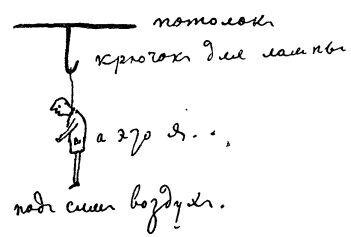 потолокъ
крючокъ для лампы
а это я...
подъ ними воздухъ.